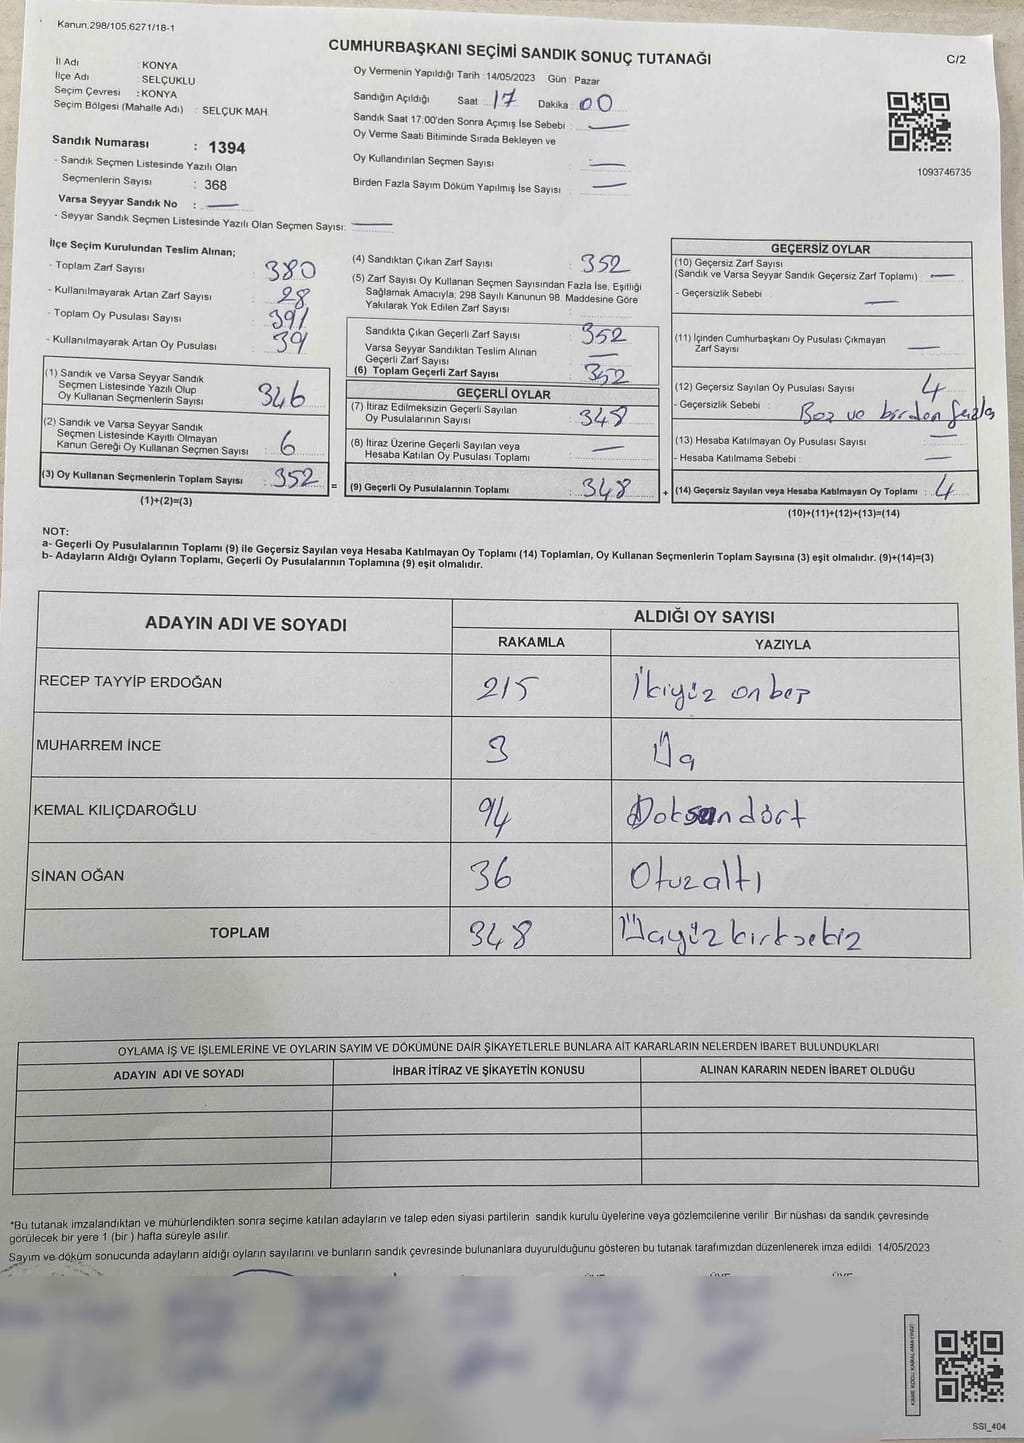 Kanun,298/105,6271/18-1
CUMHURBAŞKANI SEÇİMİ SANDIK SONUÇ TUTANAĞI
C/2
İl Adı : KONYA
İlçe Adı : SELÇUKLU
Seçim Çevresi : KONYA
Seçim Bölgesi (Mahalle Adı) : SELÇUK MAH.
Sandık Numarası : 1394
- Sandık Seçmen Listesinde Yazılı Olan
Seçmenlerin Sayısı : 368
Varsa Seyyar Sandık No : —
- Seyyar Sandık Seçmen Listesinde Yazılı Olan Seçmen Sayısı: —
Oy Vermenin Yapıldığı Tarih : 14/05/2023 Gün : Pazar
Sandığın Açıldığı Saat : 17 Dakika : 00
Sandık Saat 17:00'den Sonra Açımış İse Sebebi : —
Oy Verme Saati Bitiminde Sırada Bekleyen ve
Oy Kullandırılan Seçmen Sayısı : —
Birden Fazla Sayım Döküm Yapılmış İse Sayısı : —
1093746735
İlçe Seçim Kurulundan Teslim Alınan;
- Toplam Zarf Sayısı : 380
- Kullanılmayarak Artan Zarf Sayısı : 28
- Toplam Oy Pusulası Sayısı : 391
- Kullanılmayarak Artan Oy Pusulası : 39
(1) Sandık ve Varsa Seyyar Sandık
Seçmen Listesinde Yazılı Olup
Oy Kullanan Seçmenlerin Sayısı : 346
(2) Sandık ve Varsa Seyyar Sandık
Seçmen Listesinde Kayıtlı Olmayan
Kanun Gereği Oy Kullanan Seçmen Sayısı : 6
(3) Oy Kullanan Seçmenlerin Toplam Sayısı : 352
(1)+(2)=(3)
(4) Sandıktan Çıkan Zarf Sayısı : 352
(5) Zarf Sayısı Oy Kullanan Seçmen Sayısından Fazla İse, Eşitliği
Sağlamak Amacıyla; 298 Sayılı Kanunun 98. Maddesine Göre
Yakılarak Yok Edilen Zarf Sayısı :
Sandıkta Çıkan Geçerli Zarf Sayısı : 352
Varsa Seyyar Sandıktan Teslim Alınan
Geçerli Zarf Sayısı : —
(6) Toplam Geçerli Zarf Sayısı : 352
GEÇERLİ OYLAR
(7) İtiraz Edilmeksizin Geçerli Sayılan
Oy Pusulalarının Sayısı : 348
(8) İtiraz Üzerine Geçerli Sayılan veya
Hesaba Katılan Oy Pusulası Toplamı : —
= (9) Geçerli Oy Pusulalarının Toplamı : 348
GEÇERSİZ OYLAR
(10) Geçersiz Zarf Sayısı
(Sandık ve Varsa Seyyar Sandık Geçersiz Zarf Toplamı) : —
- Geçersizlik Sebebi : —
(11) İçinden Cumhurbaşkanı Oy Pusulası Çıkmayan
Zarf Sayısı : —
(12) Geçersiz Sayılan Oy Pusulası Sayısı : 4
- Geçersizlik Sebebi : Boz ve birden fazla
(13) Hesaba Katılmayan Oy Pusulası Sayısı : —
- Hesaba Katılmama Sebebi : —
+ (14) Geçersiz Sayılan veya Hesaba Katılmayan Oy Toplamı : 4
(10)+(11)+(12)+(13)=(14)
NOT:
a- Geçerli Oy Pusulalarının Toplamı (9) ile Geçersiz Sayılan veya Hesaba Katılmayan Oy Toplamı (14) Toplamları, Oy Kullanan Seçmenlerin Toplam Sayısına (3) eşit olmalıdır. (9)+(14)=(3)
b- Adayların Aldığı Oyların Toplamı, Geçerli Oy Pusulalarının Toplamına (9) eşit olmalıdır.
ADAYIN ADI VE SOYADI ALDIĞI OY SAYISI
RAKAMLA YAZIYLA
RECEP TAYYİP ERDOĞAN 215 İkiyüz on beş
MUHARREM İNCE 3 Üç
KEMAL KILIÇDAROĞLU 94 Doksan dört
SİNAN OĞAN 36 Otuz altı
TOPLAM 348 Üçyüz kırksekiz
OYLAMA İŞ VE İŞLEMLERİNE VE OYLARIN SAYIM VE DÖKÜMÜNE DAİR ŞİKAYETLERLE BUNLARA AİT KARARLARIN NELERDEN İBARET BULUNDUKLARI
ADAYIN ADI VE SOYADI İHBAR İTİRAZ VE ŞİKAYETİN KONUSU ALINAN KARARIN NEDEN İBARET OLDUĞU
*Bu tutanak imzalandıktan ve mühürlendikten sonra seçime katılan adayların ve talep eden siyasi partilerin sandık kurulu üyelerine veya gözlemcilerine verilir. Bir nüshası da sandık çevresinde
görülecek bir yere 1 (bir ) hafta süreyle asılır.
Sayım ve döküm sonucunda adayların aldığı oyların sayılarını ve bunların sandık çevresinde bulunanlara duyurulduğunu gösteren bu tutanak tarafımızdan düzenlenerek imza edildi. 14/05/2023
SSI_404